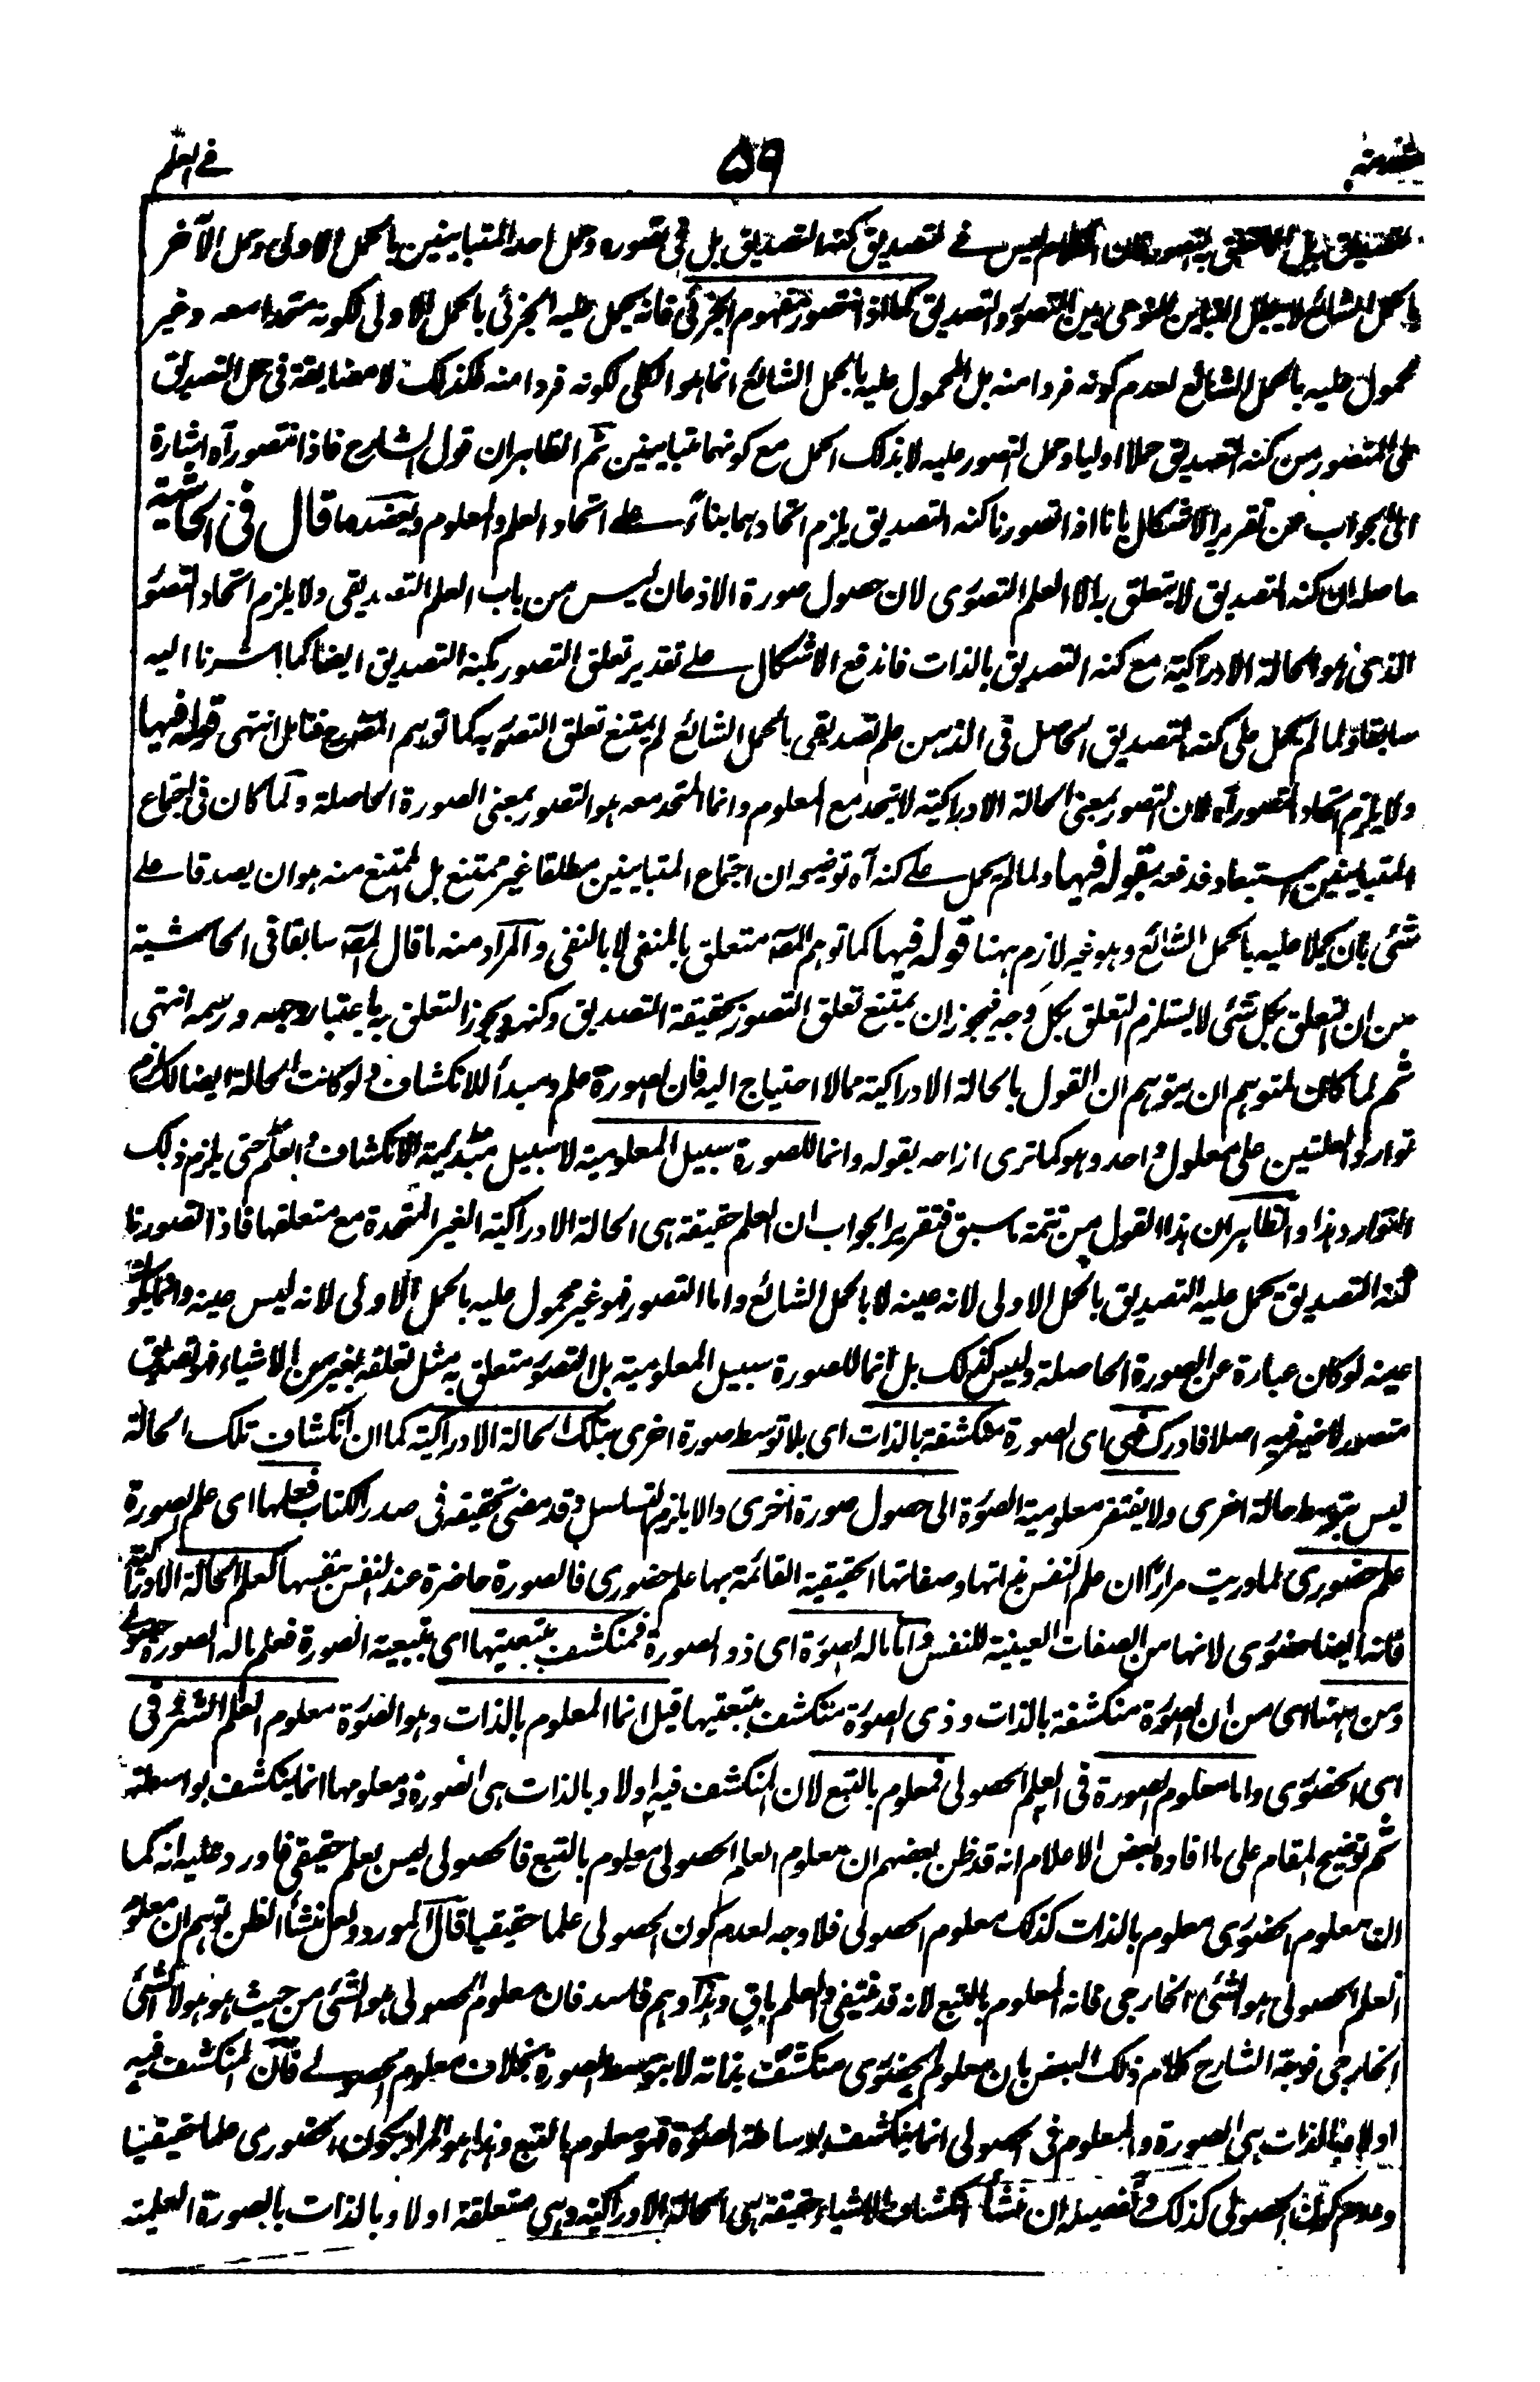 مقدمة
۵۹
في العلم
التصديق كنه التصديق بل في تصوره وحمل احد المتباينين بالحمل الاولى وحمل الآخر
بالحمل الشائع لا يبطل التباين النوعى بين التصور والتصديق كما اذا تصور مفهوم الجزئى فانه يحمل عليه الجزئى بالحمل الاولى لكونه متحدا معه وغير
محمول عليه بالحمل الشائع لعدم كونه فردا منه بل المحمول عليه بالحمل الشائع انما هو الكلى لكونه فردا منه فكذلك لا مضايقة فى حمل التصديق
على المتصور من كنه التصديق حملا اوليا وحمل التصور عليه لا بذلك الحمل مع كونهما متباينين ثم الظاهر ان قول الشارح فاذا تتصور آه اشارة
الى الجواب عن تقرير الاشكال بانا اذا تصورنا كنه التصديق يلزم اتحادهما بناءً على اتحاد العلم والمعلوم ويعضده ما قال فى الحاشية
حاصله ان كنه التصديق لا يتعلق به الا العلم التصورى لان حصول صورة الاذعان ليس من باب العلم التصديقى ولا يلزم اتحاد التصور
الذى هو الحالة الادراكية مع كنه التصديق بالذات فاندفع الاشكال على تقدير تعلق التصور بكنه التصديق ايضا كما اشرنا اليه
سابقا ولما لم يحمل على كنه التصديق الحاصل فى الذهن علم تصديقى بالحمل الشائع لم يمتنع تعلق التصور به كما توهم المصرح فتامل انتهى قوله فيها
ولا يلزم اتحاد التصور آه لان التصور بمعنى الحالة الادراكية لا يتحد مع المعلوم وانما المتحد معه هو التصور بمعنى الصورة الحاصلة ولما كان فى اجتماع
المتباينين استبعاد فدفعه بقوله فيها ولما لم يحمل على كنه آه توضيحه ان اجتماع المتباينين مطلقا غير ممتنع بل الممتنع منه هو ان يصدقا على
شئ بان يحملا عليه بالحمل الشائع وهو غير لازم ههنا قوله فيها كما توهم المصـ متعلق بالمنفى لا بالنفى والمراد منه ما قال المصـ سابقا فى الحاشية
من ان التعلق بكل شئ لا يستلزم التعلق بكل وجه فيجوز ان يمتنع تعلق التصور بحقيقة التصديق وكنهه ويجوز التعلق به باعتبار وجهه ورسمه انتهى
ثم لما كان لمتوهم ان يتوهم ان القول بالحالة الادراكية مما لا احتياج اليه فان الصورة علم ومبدأ للانكشاف ولو كانت الحالة ايضا كذلك لزم
توارد العلتين على معلول واحد وهو كما ترى ازاحه بقوله وانما للصورة سبيل المعلومية لا سبيل مبدئية الانكشاف والعلم حتى يلزم ذلك
التوارد هذا والظاهر ان هذا القول من تتمة ما سبق فتقرير الجواب ان العلم حقيقة هى الحالة الادراكية الغير المتحدة مع متعلقها فاذا تصورنا
كنه التصديق يحمل عليه التصديق بالحمل الاولى لانه عينه لا بالحمل الشائع واما التصور فهو غير محمول عليه بالحمل الاولى لانه ليس عينه وانما يكون
عينه لو كان عبارة عن الصورة الحاصلة وليس كذلك بل انما للصورة سبيل المعلومية بل التصور متعلق به مثل تعلقه بغيره من الاشياء فهو تصديق
متصور لا ضير فيه اصلا فادرك فهى اى الصورة منكشفة بالذات اى بلا توسط صورة اخرى بتلك الحالة الادراكية كما ان انكشاف تلك الحالة
ليس بتوسط حالة اخرى ولا يفتقر معلومية الصورة الى حصول صورة اخرى والا يلزم التسلسل وقد مضى تحقيقه فى صدر الكتاب فعلمها اى علم الصورة
علم حضورى لما دريت مرارًا ان علم النفس بذاتها وصفاتها الحقيقية القائمة بها علم حضورى فالصورة حاضرة عند النفس بنفسها كعلم الحالة الادراكية
فانه ايضا حضورى لانها من الصفات العينية للنفس واما ما له الصورة اى ذو الصورة فمنكشف بتبعيتها اى بتبعية الصورة فعلم ما له الصورة حصولى
ومن ههنا اى من ان الصورة منكشفة بالذات وذى الصورة منكشف بتبعيتها قيل انما المعلوم بالذات وهو الصورة معلوم العلم الشرقى
اى الحضورى واما معلوم الصورة فى العلم الحصولى فمعلوم بالتبع لان المنكشف فيه اولا وبالذات هى الصورة ومعلومها انما ينكشف بواسطته
ثم توضيح المقام على ما افاده بعض الاعلام انه قد ظن بعضهم ان معلوم العلم الحصولى معلوم بالتبع فالحصولى ليس بعلم حقيقى فاورد عليه انه كما
ان معلوم الحضورى معلوم بالذات كذلك معلوم الحصولى فلا وجه لعدم كون الحصولى علما حقيقيا قال المورد ولعل منشأ الظن توهم ان معلوم
العلم الحصولى هو الشئ الخارجى فانه المعلوم بالتبع لانه قد ينتفى والعلم باق وهذا وهم فاسد فان معلوم الحصولى هو الشئ من حيث هو هو لا الشئ
الخارجى فوجه الشارح كلام ذلك البعض بان معلوم الحضورى منكشف بذاته لا بتوسط الصورة بخلاف معلوم الحصولى فان المنكشف فيه
اولا وبالذات هى الصورة والمعلوم فى الحصولى انما ينكشف بوساطة الصورة فهو معلوم بالتبع وهذا هو المراد بكون الحضورى علما حقيقيا
وعدم كون الحصولى كذلك وتفصيله ان منشأ انكشاف الاشياء حقيقة هى الحالة الادراكية وهى متعلقة اولا وبالذات بالصورة العلمية